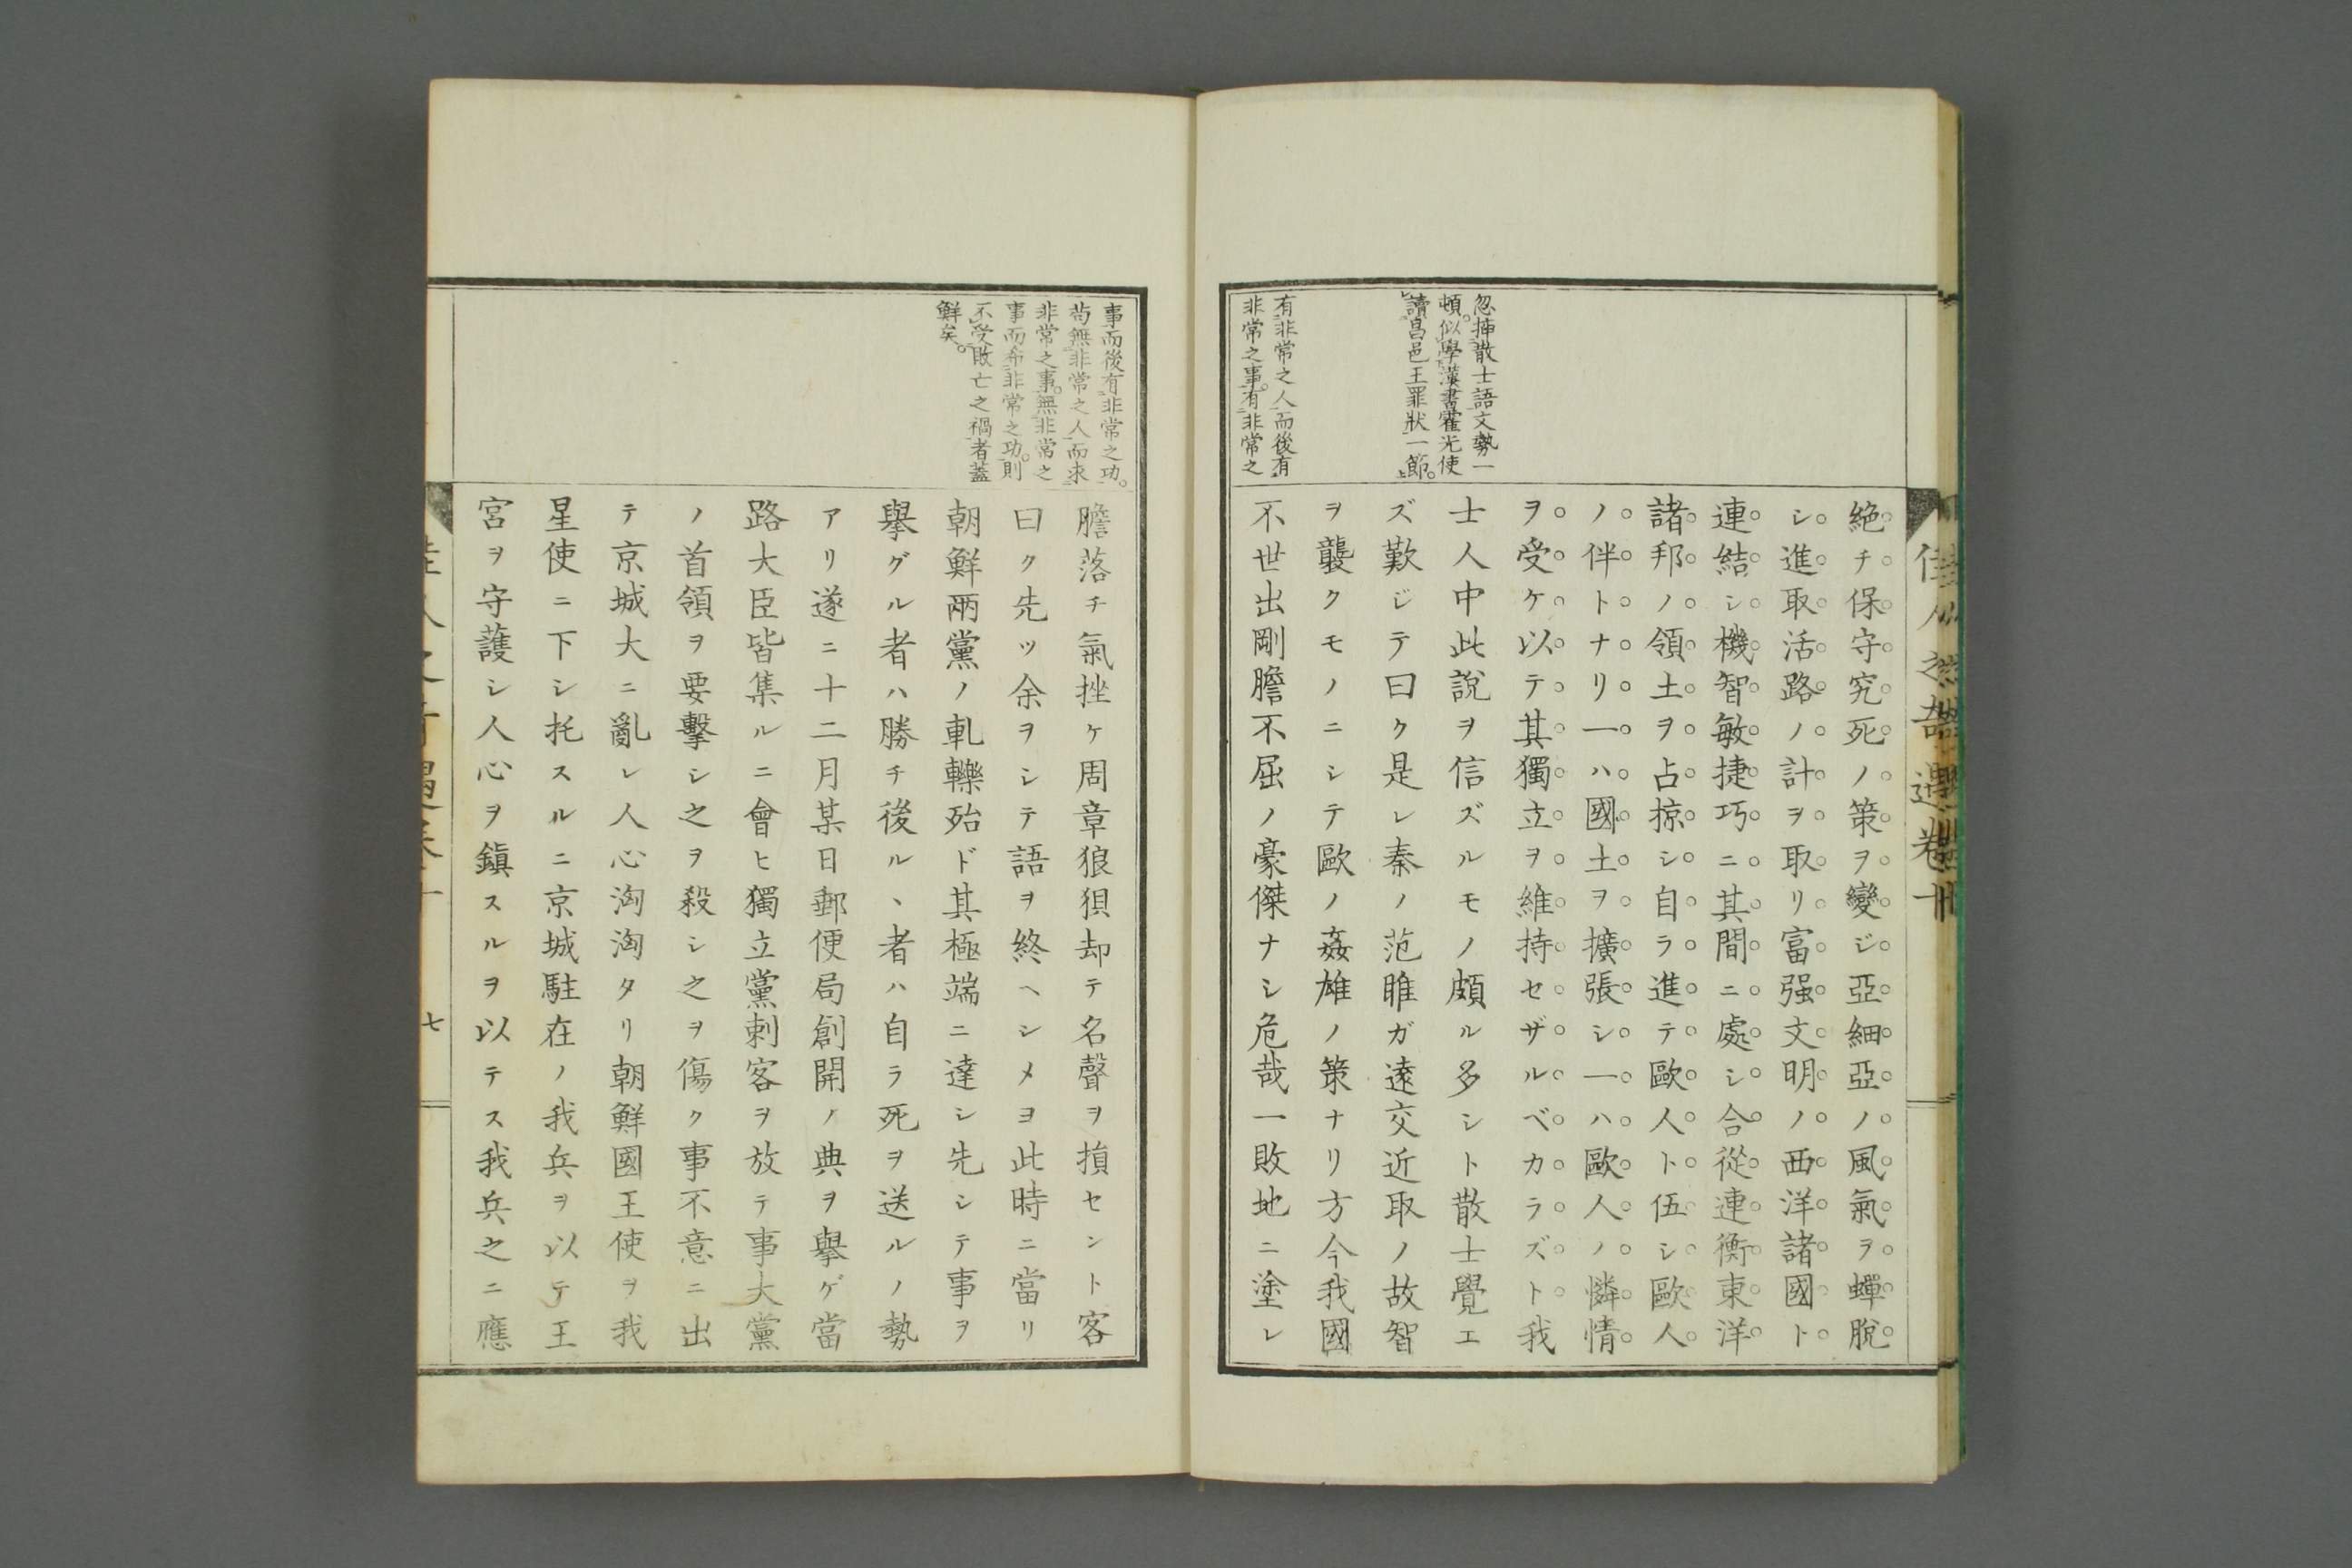 佳人之奇遇卷十
忽挿散士語文勢一
頓似學漢書霍光使
讀昌邑王罪狀一節
有非常之人而後有
非常之事有非常之
絶チ保守究死ノ策ヲ變ジ亞細亞ノ風氣ヲ蟬脫
シ進取活路ノ計ヲ取リ富强文明ノ西洋諸國ト
連結シ機智敏捷巧ニ其間ニ處シ合從連衡東洋
諸邦ノ領土ヲ占掠シ自ラ進テ歐人ト伍シ歐人
ノ伴トナリ一ハ國土ヲ擴張シ一ハ歐人ノ憐情
ヲ受ケ以テ其獨立ヲ維持セザルベカラズト我
士人中此說ヲ信ズルモノ頗ル多シト散士覺エ
ズ歎ジテ曰ク是レ秦ノ范雎ガ遠交近取ノ故智
ヲ襲クモノニシテ歐ノ姦雄ノ策ナリ方今我國
不世出剛膽不屈ノ豪傑ナシ危哉一敗地ニ塗レ
事而後有非常之功。
苟無非常之人而求
非常之事。無非常之
事而希非常之功。則
不受敗亡之禍者蓋
鮮矣。
膽落チ氣挫ケ周章狼狽却テ名聲ヲ損セント客
曰ク先ツ余ヲシテ語ヲ終ヘシメヨ此時ニ當リ
朝鮮兩黨ノ軋轢殆ド其極端ニ達シ先シテ事ヲ
擧グル者ハ勝チ後ルヽ者ハ自ラ死ヲ送ルノ勢
アリ遂ニ十二月某日郵便局創開ノ典ヲ擧ゲ當
路大臣皆集ルニ會ヒ獨立黨刺客ヲ放テ事大黨
ノ首領ヲ要擊シ之ヲ殺シ之ヲ傷ク事不意ニ出
テ京城大ニ亂レ人心洶洶タリ朝鮮國王使ヲ我
星使ニ下シ托スルニ京城駐在ノ我兵ヲ以テ王
宮ヲ守護シ人心ヲ鎭スルヲ以テス我兵之ニ應
七